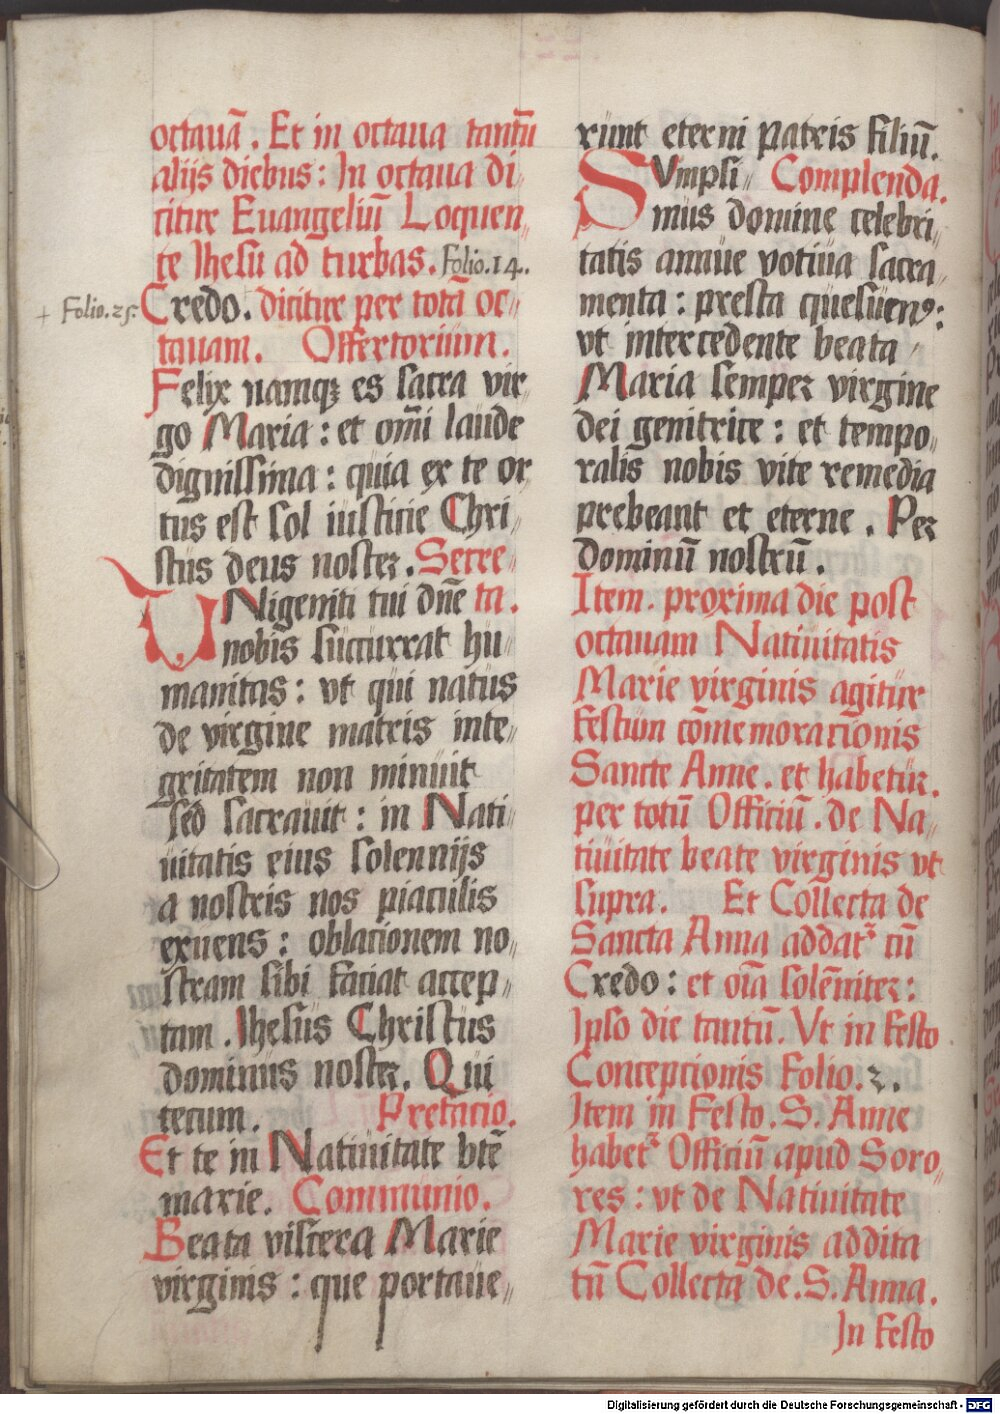 octauā. Et in octaua tantū
aliis diebus: In octaua di
citur Euangeliū Loquen„
te Ihesu ad turbas. Folio.14.
+ Folio.25: Credo. dicitur per totā oc„
tauam. Offertorium.
Felix namqȝ es sacra vir„
go Maria: et om̄i laude
dignissima: quia ex te or„
tus est sol iusticie Chri„
stus deus noster. Secre„
VNigeniti tui dn̄e ta.
nobis succurrat hu„
manitas: vt qui natus
de virgine matris inte„
gritatem non minuit
sed sacrauit: in Nati„
uitatis eius solenniis
a nostris nos piaculis
exuens: oblationem no„
stram sibi faciat accep„
tam. Ihesus Christus
dominus noster. Qui
tecum. Prefacio.
Et te in Natiuitate btē
marie. Communio.
Beata viscera Marie
virginis: que portaue„
runt eterni patris filiū.
SVmpsi„ Complenda.
mus domine celebri„
tatis annue votiua sacra„
menta: presta quesuenꝰ:
vt intercedente beata
Maria semper virgine
dei genitrice: et tempo„
ralis nobis vite remedia
prebeant et eterne. Per
dominū nostrū.
Item. proxima die post
octauam Natiuitatis
Marie virginis agitur
festum com̄emoracionis
Sancte Anne. et habetur.
per totū Officiū. de Na„
tiuitate beate virginis vt
supra. Et Collecta de
Sancta Anna addatꝛ cū
Credo: et oīa solēniter:
Ipso die tantū. Vt in festo
Conceptionis Folio.2.
Item in Festo. S. Anne
habetꝛ Officiū apud Soro„
res: vt de Natiuitate
Marie virginis addita
tn̄ Collecta de. S. Anna.
In festo
Digitalisierung gefördert durch die Deutsche Forschungsgemeinschaft - DFG